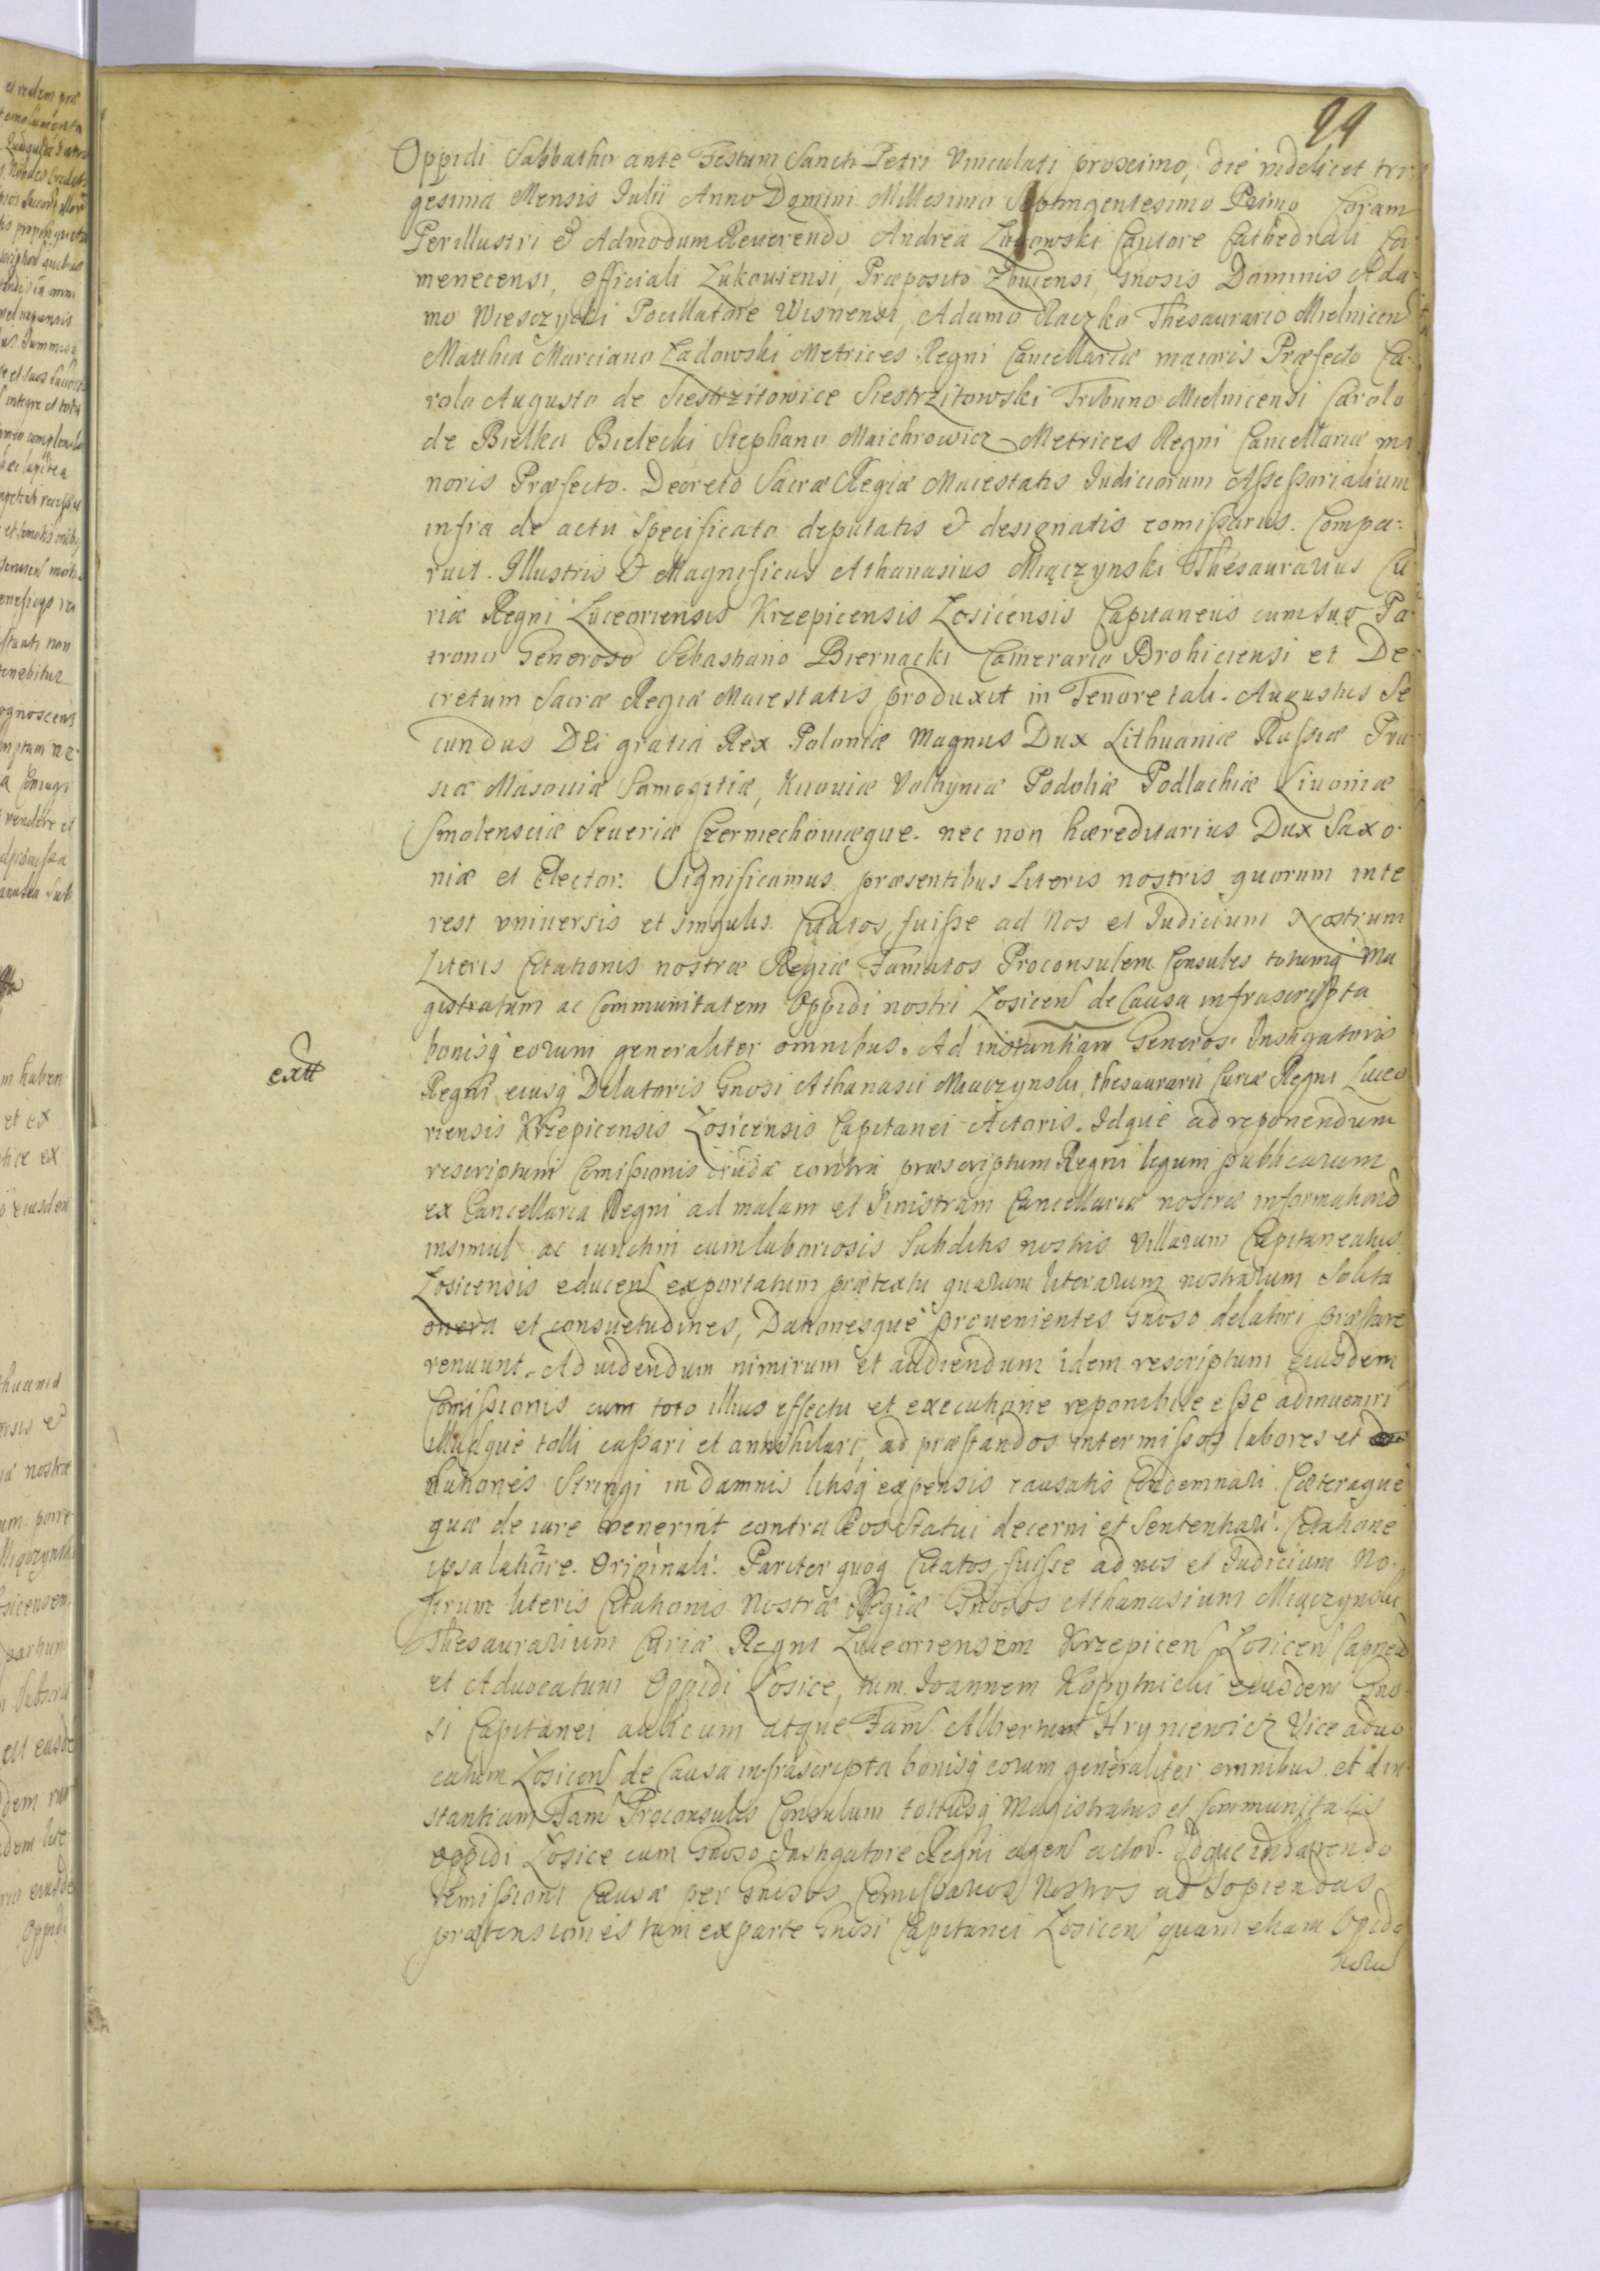 29
Oppidi Sabbatho ante Festum Sancti Petri Vinculati proximo, die videlicet tri
gesima Mensis Julii Anno Domini Millesimo Septingentesimo Primo Coram
Perillustri & Admodum Reuerendo Andrea Cantore Cathedrali Ca
menecensi, Officiali Lukouiensi, Præposito Zbuciensi, Gnosis Dominis Ada-
mo Wieszycki Pocillatore Wisnensi, Adamo Raczko Thesaurario Mielnicen
Matthia Marciano Ladowski Metrices Regni Cancellariæ maioris Præfecto Ca-
rolo Augusto de Siestrzitowice Siestrzitowski Tribuno Mielnicensi Carolo
de Bielka Bielecki Stephano Maichrowicz Metrices Regni Cancellariæ mi
noris Præfecto. Decreto Sacræ Regiæ Maiestatis Judiciorum Assessorialium
infra de actu specificato deputatis & designatis comissariis. Compa-
ruit. Illustris & Magnificus Athanasius Miączynski Thesaurarius Cu
riæ Regni Luceoriensis Krzepicensis Losicensis Capitaneus cum suo Pa-
trono Generoso Sebastiano Biernacki Camerario Brohiciensi et De-
cretum Sacræ Regiæ Maiestatis produxit in Tenore tali. Augustus Se
cundus Dei gratia Rex Poloniæ Magnus Dux Lithuaniæ Russiæ Pru-
siæ Masouiæ Samogitiæ, Kiiouiæ Volhyniæ Podoliæ Podlachiæ Liuoniæ
Smolensciæ Seueriæ Czerniechouiæque. nec non hæreditarius Dux Saxo-
niæ et Elector. Significamus præsentibus Literis nostris quorum inte
rest vniuersis et singulis. Citatos fuisse ad Nos et Judicium Nostrum
Literis Citationis nostræ Regiæ Famatos Proconsulem Consules totumq Ma
gistratum ac Communitatem Oppidi nostri Losicen de Causa infrascripta
bonisq eorum generaliter omnibus. Ad instantiam Generos. Instigatoris
extt
Regni eiusq Delatoris Gnosi Athanasii Miączynski, thesaurarii Curiæ Regni Luceo
riensis Krzepicensis Losicensis Capitanei Actoris. Idque ad reponendum
rescriptum Comissionis contra præscriptum Regni legum publicarum
ex Cancellaria Regni ad malam et Sinistram Cancellariæ nostræ informationē
insimul ac iunctim cum laboriosis Subditis nostris Villarum Capitaneatus
Losicensis educen exportatum prætextu quarum literarum nostrarum Solita
onera et consuetudines, Dationesque prouenientes Gnoso delatori præstare
renuunt. Ad videndum nimirum et audiendum idem rescriptum eiusdem
Comissionis cum toto illius effectu et executione reponibile esse adinueniri
illudque tolli cassari et annihilari, ad præstandos intermissos labores et
dationes Stringi in damnis litisq expensis causatis Condemnari Cæteraque
quæ de iure venerint contra eos statui decerni et Sententiari. Citatione
ipsa latiore. Originali. Pariter quoq Citatos fuisse ad nos et Judicium No-
strum literis Citationis Nostræ Regiæ Gnosos Athanasium Miączynski
Thesaurarium Curiæ Regni Luceoriensem Krzepicen Losicen Capneū
et Aduocatum Oppidi Losice, tum Joannem Kopytnicki eiusdem Gno-
si Capitanei aulicum atque Fam Albertum Hryniewicz Vice aduo
catum Losicen de Causa infrascripta bonisq eorum generaliter omnibus et ad in-
stantiam Fam Proconsulis Consulum totiusq Magistratus et Communitatis
oppidi Losice cum Gnoso Instigatore Regni agen actor. Idque
remissioni Causæ per Gnosos Comissarios Nostros ad Sopiendas
prætensiones tum ex parte Gnosi Capitanei Losicen quam etiam Opido